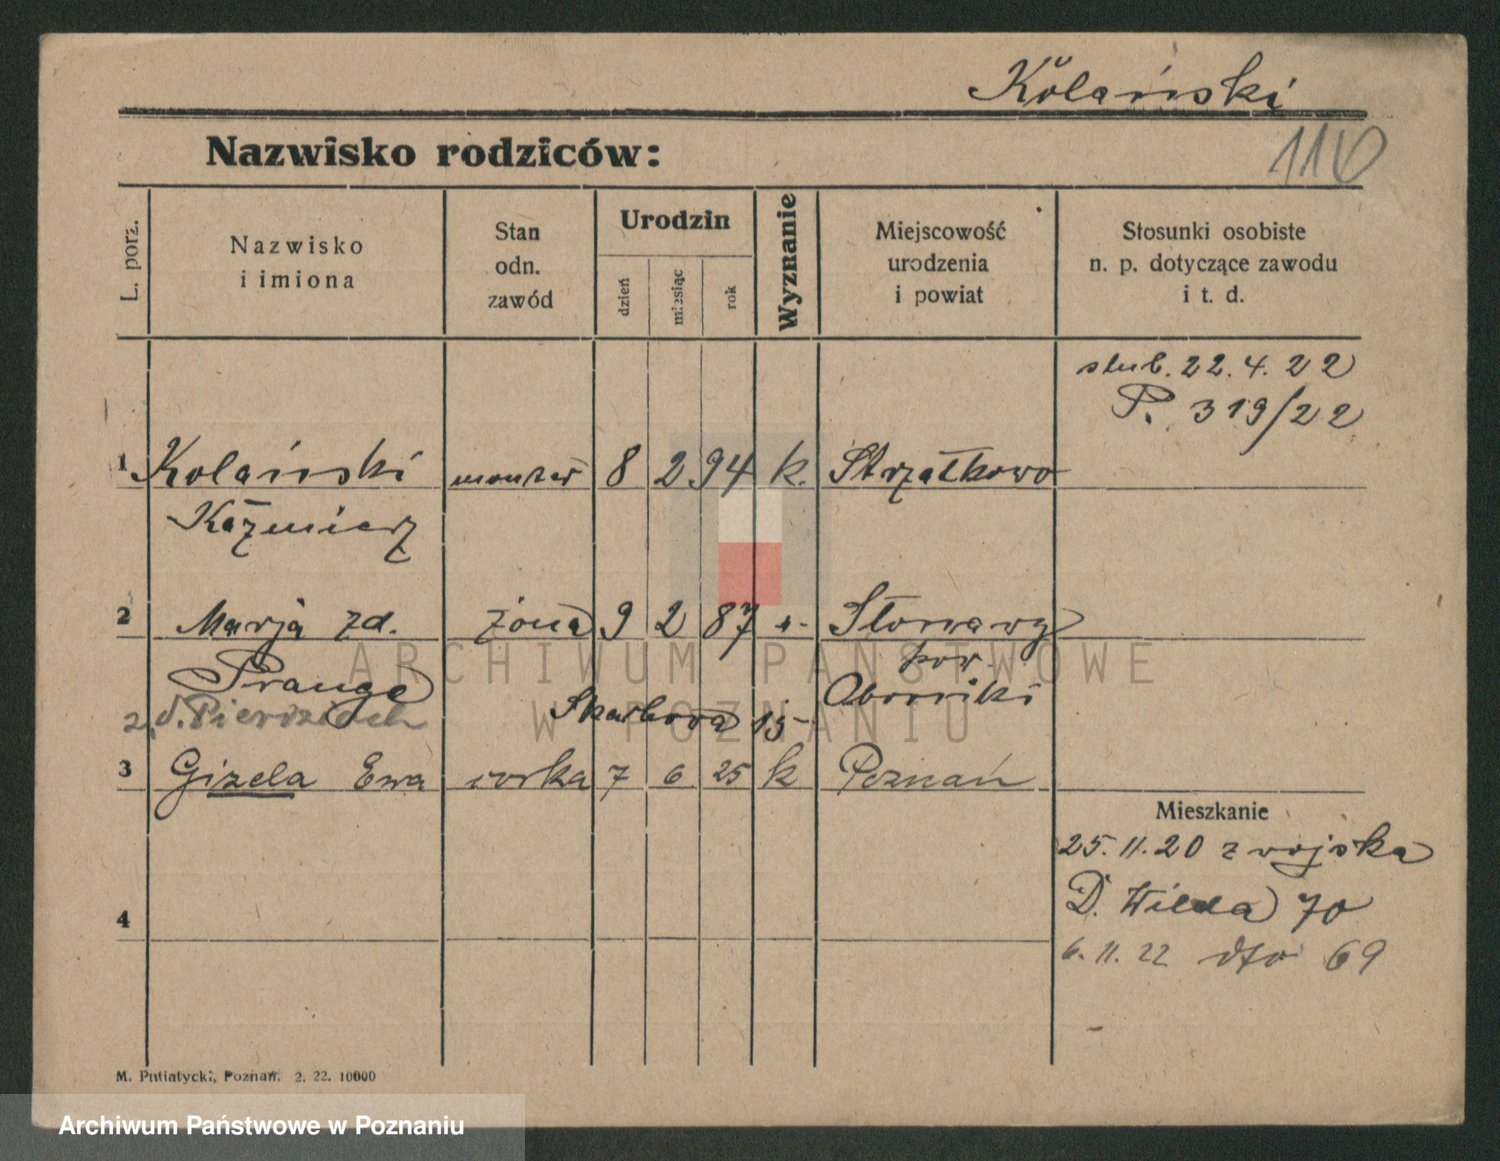 Kolański
116
Nazwisko rodziców:
L. porz.
Nazwisko
i imiona
Stan
odn.
zawód
Urodzin
dzień
miesiąc
rok
Wyznanie
Miejscowość
urodzenia
i powiat
Stosunki osobiste
n. p. dotyczące zawodu
i t. d.
ślub. 22. 4. 22
P. 319/22
1 Kolański monter 8 2 94 k. Strzałkowo
Kaźmierz
2 Marja zd. żona 9 2 87 Słonawy
pow.
Prange Oborniki
2, d. Skarbowa 15
3 Gizela Ewa corka 7 6 25 k Poznań
Mieszkanie
25. 11. 20 z wojska
D. Wilda 70
4
6. 11. 22 dto 69
M. Putiatycki, Poznań. 2. 22. 10000
ARCHIWUM PAŃSTWOWE
W POZNANIU
Archiwum Państwowe w Poznaniu